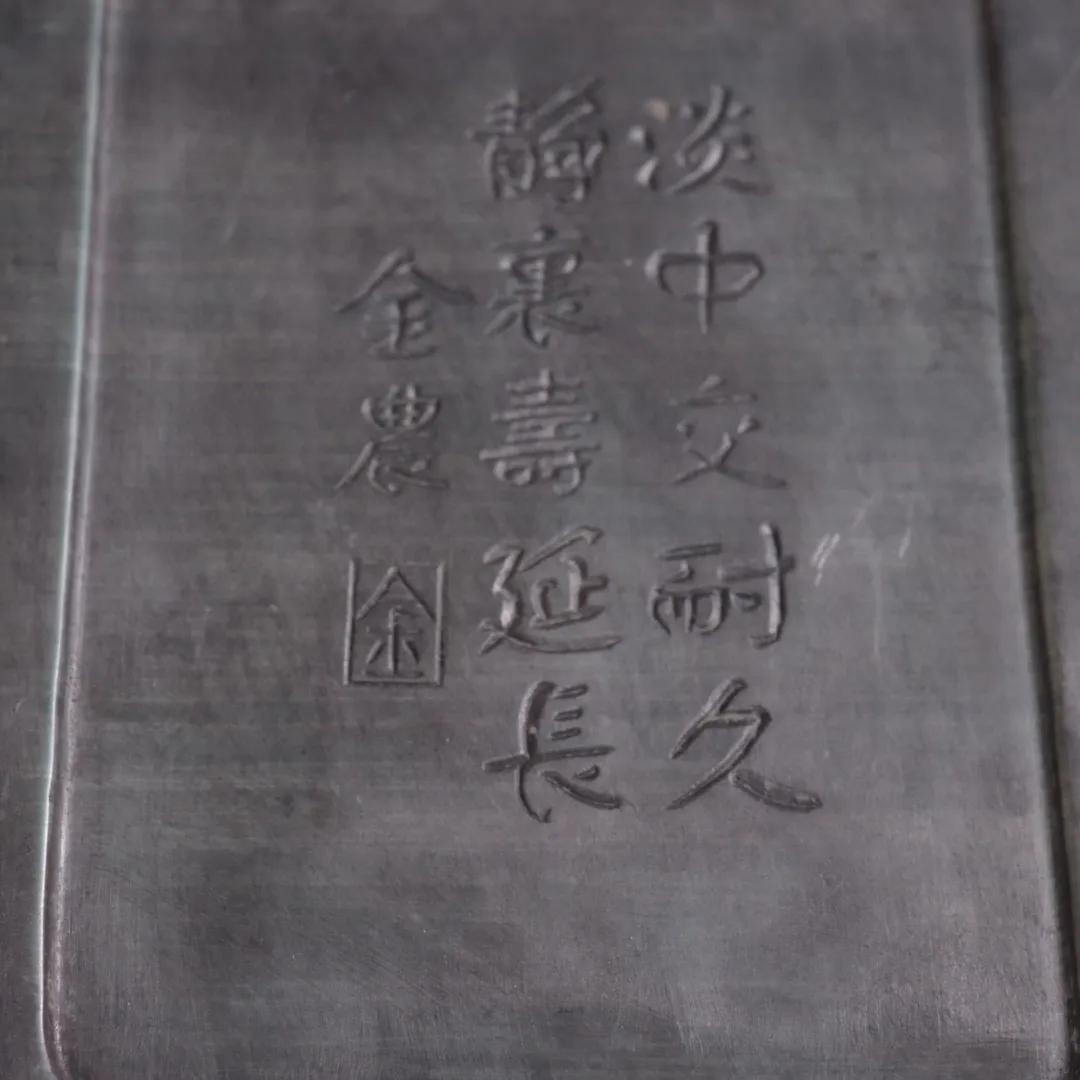 淡中交耐久
靜裏壽延長
金農
金